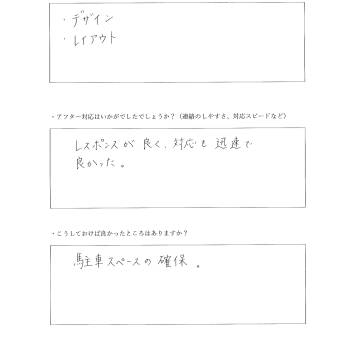 ・デザイン
・レイアウト
・アフター対応はいかがでしたでしょうか？（連絡のしやすさ、対応スピードなど）
レスポンスが良く、対応も迅速で
良かった。
・こうしておけば良かったところはありますか？
駐車スペースの確保。